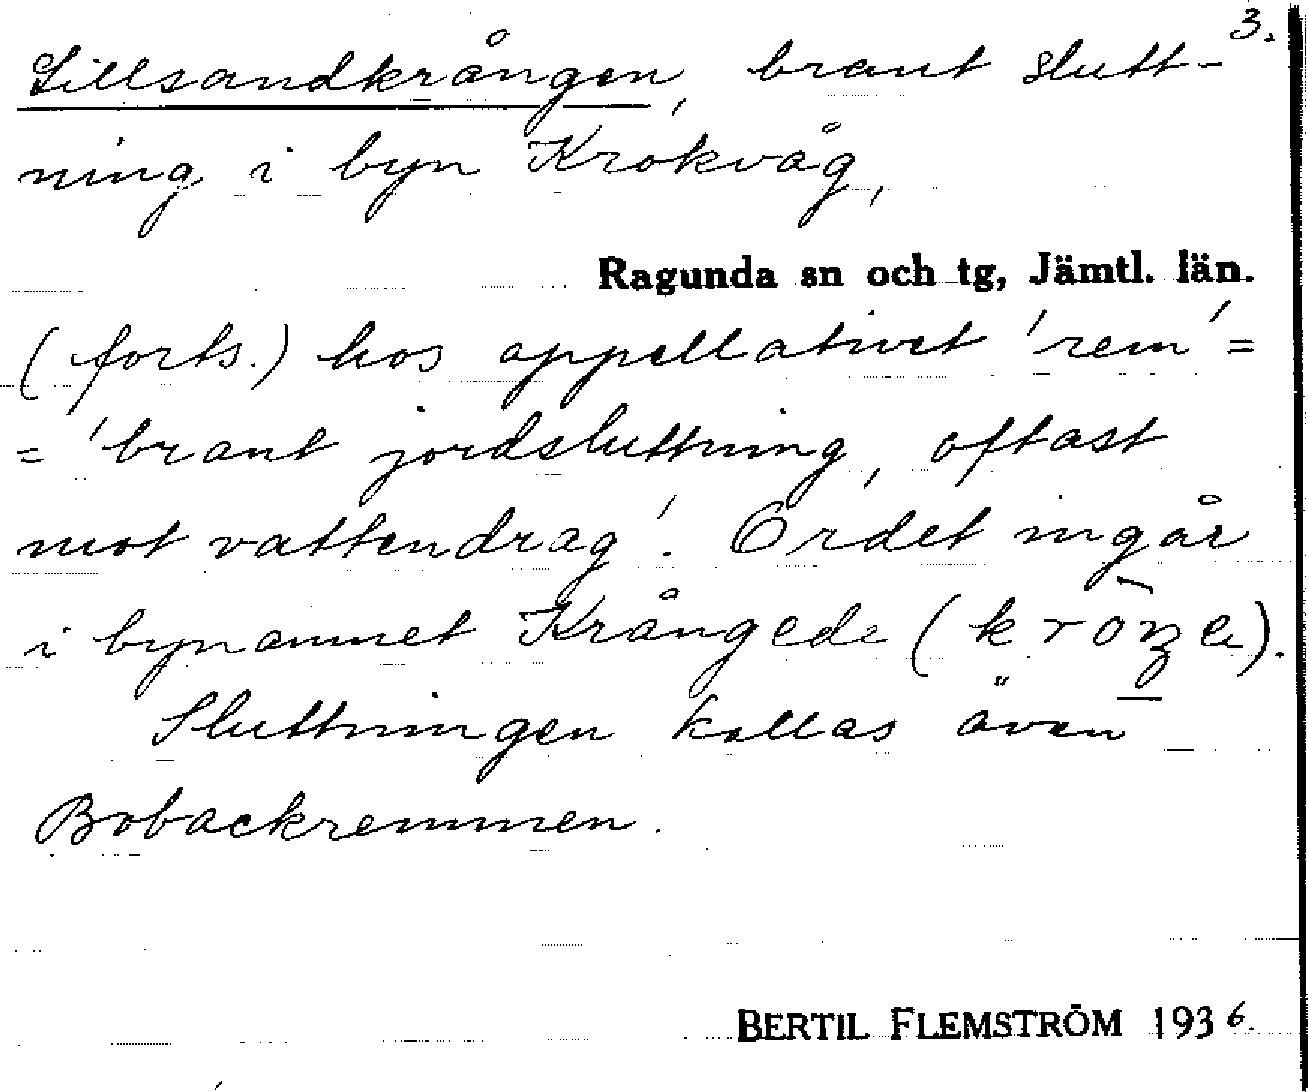 3.
Lillsandkrången, brant slutt-
ning i byn Krokvåg,
Ragunda sn och tg, Jämtl. län.
(forts.) hos appellativet 'rem' =
= 'brant jordsluttning, oftast
mot vattendrag'. Ordet ingår
i bynamnet Krångede
Sluttningen kallas även
Bobackremmen.
BERTIL FLEMSTRÖM 1936.